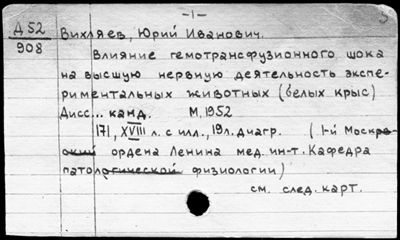 -1-
Д 52
908
Вихляев, Юрий Иванович.
Влияние гемотрансфузионного шока
на высшую нервную деятельность экспе-
риментальных животных (белых крыс)
Дисс... канд. М, 1952
171, XVIII л. с илл., 19л. диагр. (1-й Москов-
ский ордена Ленина мед. ин-т. Кафедра
патологической физиологии)
см. след. карт.